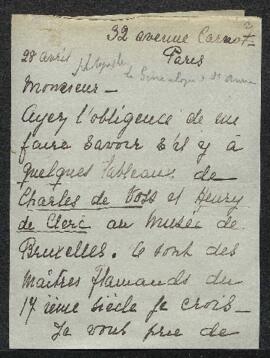 32 avenue Carnot
Paris
28 avril
Monsieur -
Ayez l'obligeance de me
faire savoir s'il y à
quelques tableaux de
Charles de Voss et Henry
de Clerc au Musée de
Bruxelles. Ce sont des
maîtres flamands du
17 ième siècle je crois -
Je vous prie de